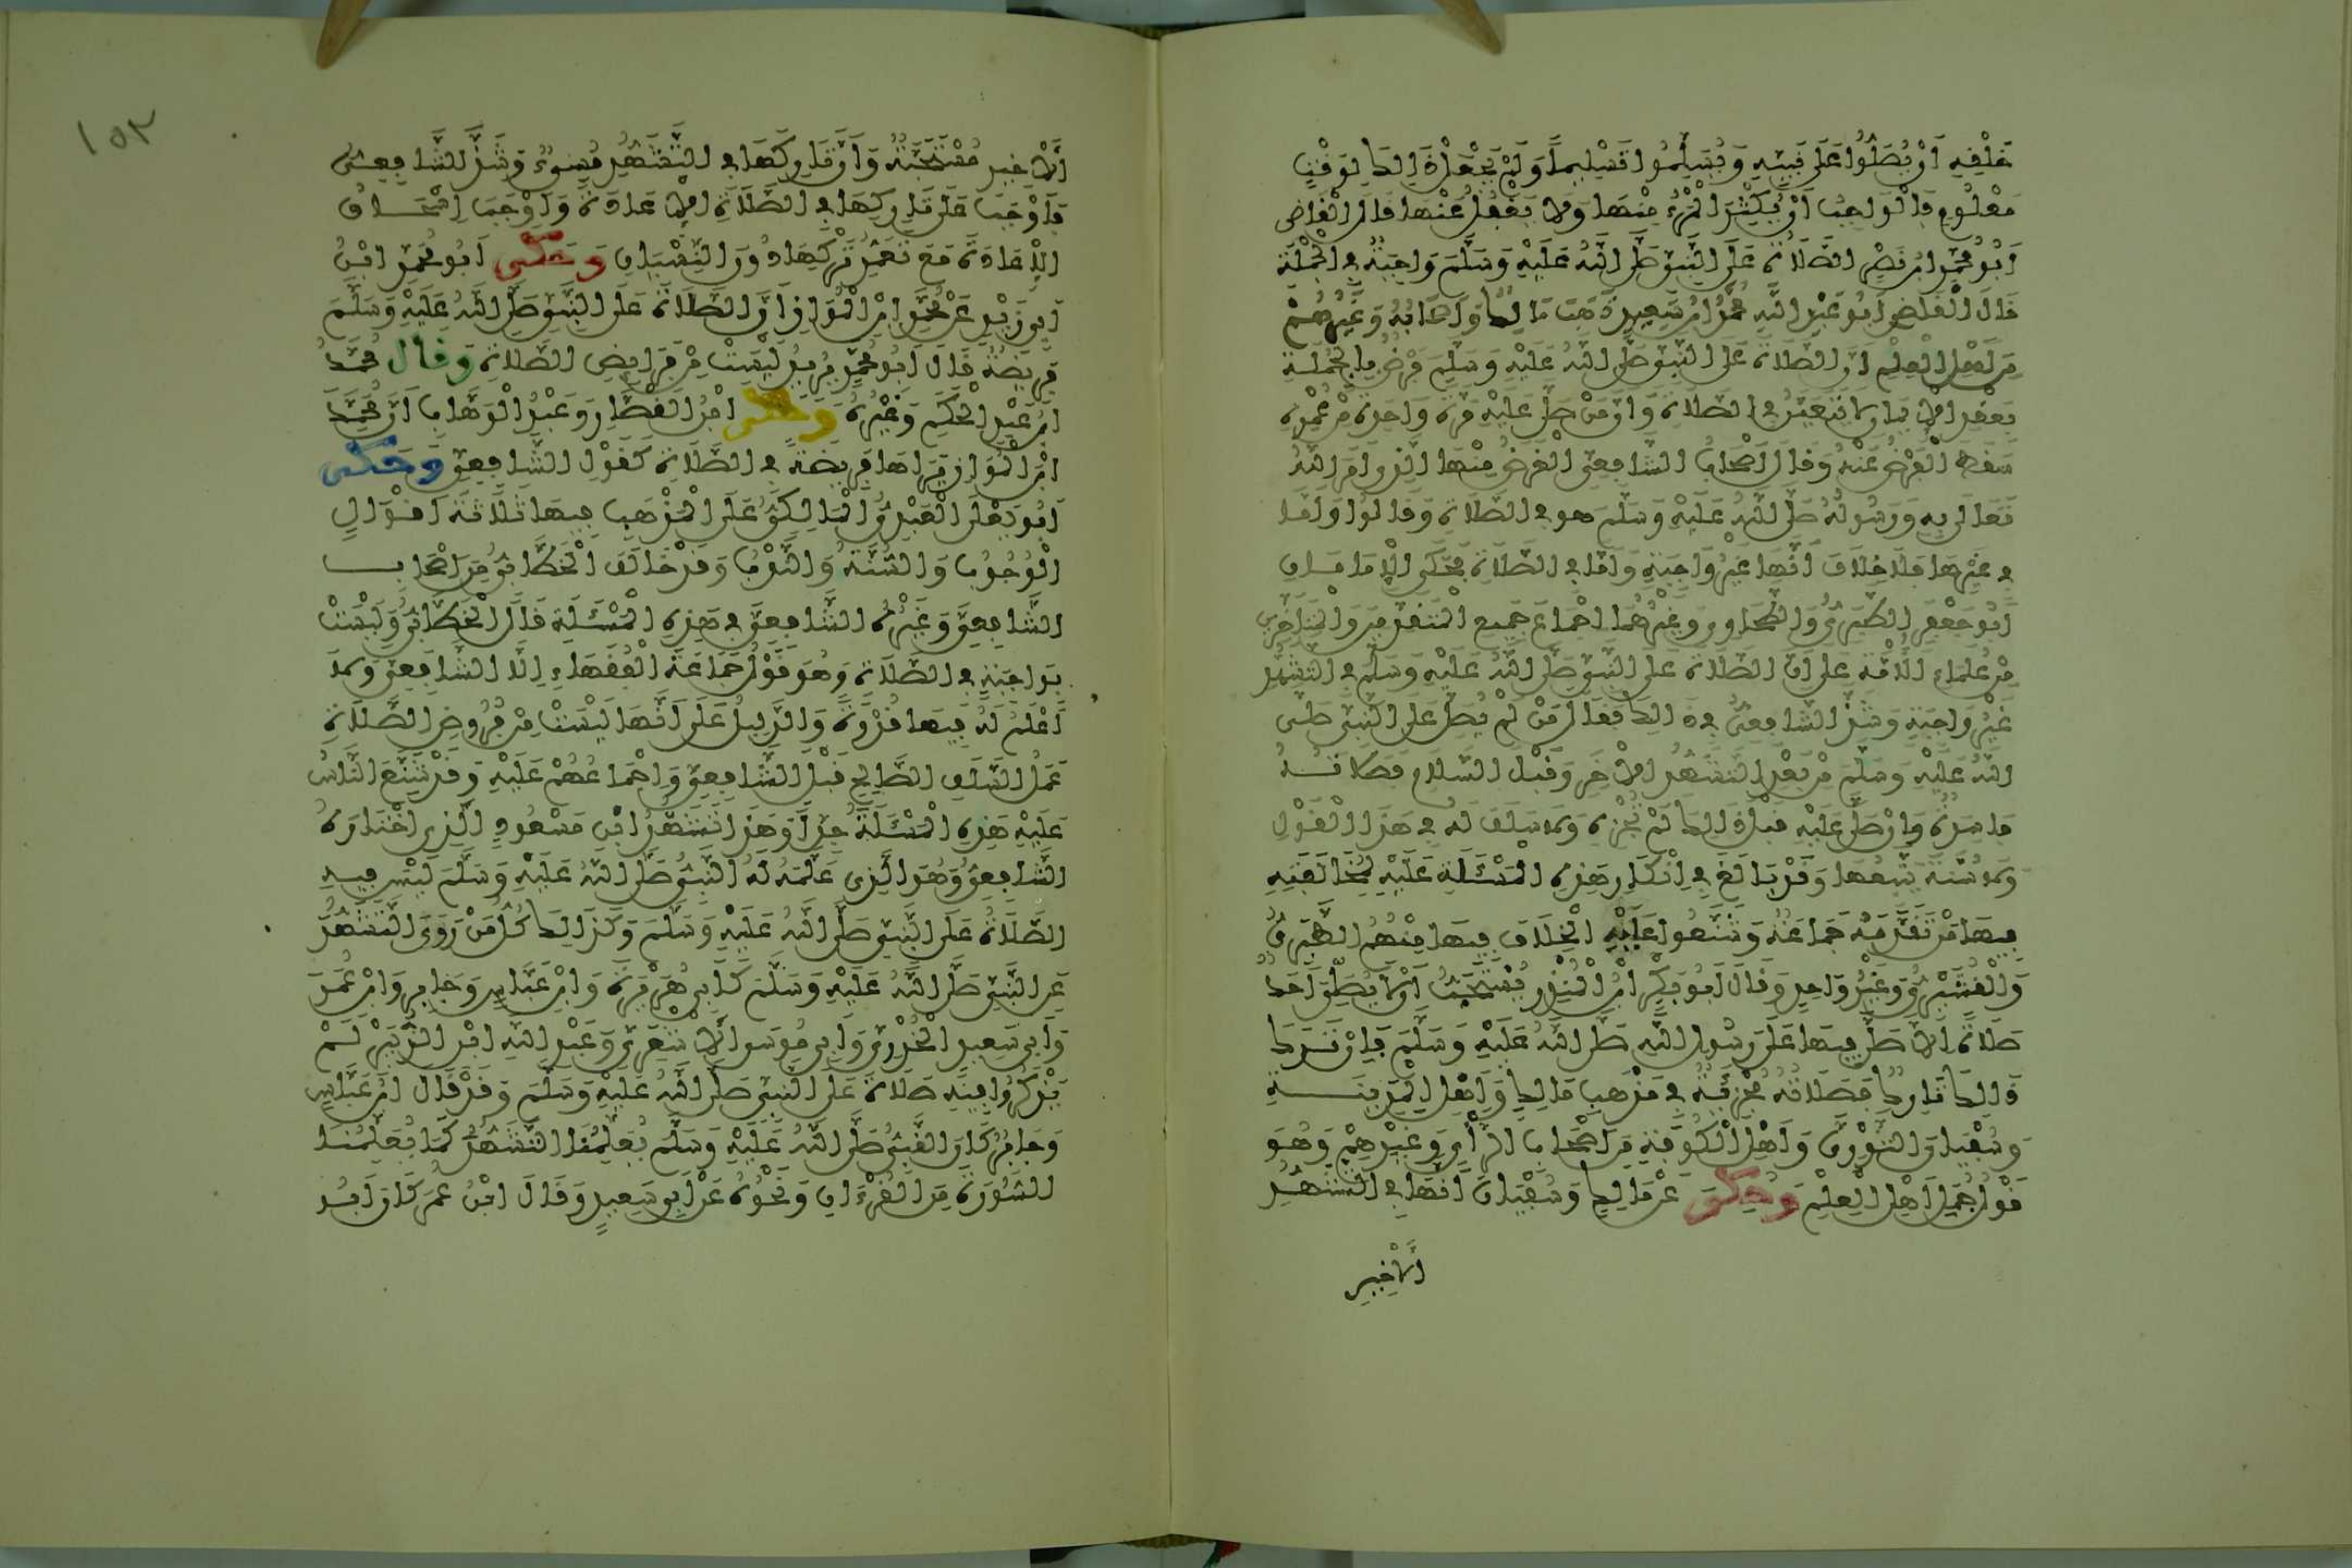 خَلْقِهِ أَنْ يُصَلُّوا عَلَى نَبِيِّهِ وَيُسَلِّمُوا تَسْلِيمًا وَلَمْ يَجْعَلْ ذَلِكَ لِوَقْتٍ
مَعْلُومٍ فَالْوَاجِبُ أَنْ يُكْثِرَ الْمَرْءُ مِنْهَا وَلَا يَغْفُلُ عَنْهَا قَالَ الْقَاضِي
أَبُو مُحَمَّدِ بْنُ نَصْرٍ الصَّلَاةُ عَلَى النَّبِيِّ صَلَّى اللَّهُ عَلَيْهِ وَسَلَّمَ وَاجِبَةٌ فِي الْجُمْلَةِ
قَالَ الْقَاضِي أَبُو عَبْدِ اللَّهِ مُحَمَّدُ بْنُ سَعِيدٍ ذَهَبَ مَالِكٌ وَأَصْحَابُهُ وَغَيْرُهُمْ
مِنْ أَهْلِ الْعِلْمِ أَنَّ الصَّلَاةَ عَلَى النَّبِيِّ صَلَّى اللَّهُ عَلَيْهِ وَسَلَّمَ فَرْضٌ بِالْجُمْلَةِ
بِعَقْدِ الْإِيمَانِ لَا يَتَعَيَّنُ فِي الصَّلَاةِ وَأَنَّ مَنْ صَلَّى عَلَيْهِ مَرَّةً وَاحِدَةً مِنْ عُمْرِهِ
سَقَطَ الْفَرْضُ عَنْهُ وَقَالَ أَصْحَابُ الشَّافِعِيِّ الْفَرْضُ مِنْهَا الَّذِي أَمَرَ اللَّهُ
تَعَالَى بِهِ وَرَسُولُهُ صَلَّى اللَّهُ عَلَيْهِ وَسَلَّمَ هُوَ فِي الصَّلَاةِ وَقَالُوا وَأَمَّا
فِي غَيْرِهَا فَلَا خِلَافَ أَنَّهَا غَيْرُ وَاجِبَةٍ وَأَمَّا فِي الصَّلَاةِ فَحَكَى الْإِمَامَانِ
أَبُو جَعْفَرٍ الطَّبَرِيُّ وَالطَّحَاوِيُّ وَغَيْرُهُمَا إِجْمَاعَ جَمِيعِ الْمُتَقَدِّمِينَ وَالْمُتَأَخِّرِينَ
مِنْ عُلَمَاءِ الْأُمَّةِ عَلَى أَنَّ الصَّلَاةَ عَلَى النَّبِيِّ صَلَّى اللَّهُ عَلَيْهِ وَسَلَّمَ فِي التَّشَهُّدِ
غَيْرُ وَاجِبَةٍ وَشَذَّ الشَّافِعِيُّ فِي ذَلِكَ فَقَالَ مَنْ لَمْ يُصَلِّ عَلَى النَّبِيِّ صَلَّى
اللَّهُ عَلَيْهِ وَسَلَّمَ مِنْ بَعْدِ التَّشَهُّدِ الْآخِرِ وَقَبْلَ السَّلَامِ فَصَلَاتُهُ
فَاسِدَةٌ وَإِنْ صَلَّى عَلَيْهِ قَبْلَ ذَلِكَ لَمْ تُجْزِهِ وَلَا سَلَفَ لَهُ فِي هَذَا الْقَوْلِ
وَلَا سُنَّةَ يَتْبَعُهَا وَقَدْ بَالَغَ فِي إِنْكَارِ هَذِهِ الْمَسْأَلَةِ عَلَيْهِ لِمُخَالَفَتِهِ
فِيهَا مَنْ تَقَدَّمَهُ جَمَاعَةٌ وَشَنَّعُوا عَلَيْهِ الْخِلَافَ فِيهَا مِنْهُمُ الطَّبَرِيُّ
وَالْقُشَيْرِيُّ وَغَيْرُ وَاحِدٍ وَقَالَ أَبُو بَكْرِ بْنُ الْمُنْذِرِ يُسْتَحَبُّ أَلَّا يُصَلِّيَ أَحَدٌ
صَلَاةً إِلَّا صَلَّى فِيهَا عَلَى رَسُولِ اللَّهِ صَلَّى اللَّهُ عَلَيْهِ وَسَلَّمَ فَإِنْ تَرَكَ
ذَلِكَ تَارِكٌ فَصَلَاتُهُ مُجْزِئَةٌ فِي مَذْهَبِ مَالِكٍ وَأَهْلِ الْمَدِينَةِ
وَسُفْيَانَ الثَّوْرِيِّ وَأَهْلِ الْكُوفَةِ مِنْ أَصْحَابِ الرَّأْيِ وَغَيْرِهِمْ وَهُوَ
قَوْلُ جُمَلِ أَهْلِ الْعِلْمِ وَحُكِيَ عَنْ مَالِكٍ وَسُفْيَانَ أَنَّهَا فِي التَّشَهُّدِ
الْأَخِيرِ
١٥٣
الْأَخِيرِ مُسْتَحَبَّةٌ وَأَنَّ تَارِكَهَا فِي التَّشَهُّدِ مُسِيءٌ وَشَذَّ الشَّافِعِيُّ
فَأَوْجَبَ عَلَى تَارِكِهَا فِي الصَّلَاةِ الْإِعَادَةَ وَأَوْجَبَ إِسْحَاقُ
الْإِعَادَةَ مَعَ تَعَمُّدِ تَرْكِهَا دُونَ النِّسْيَانِ وَحَكَى أَبُو مُحَمَّدِ ابْنُ
أَبِي زَيْدٍ عَنْ مُحَمَّدِ بْنِ الْمَوَّازِ أَنَّ الصَّلَاةَ عَلَى النَّبِيِّ صَلَّى اللَّهُ عَلَيْهِ وَسَلَّمَ
فَرِيضَةٌ قَالَ أَبُو مُحَمَّدٍ يُرِيدُ لَيْسَتْ مِنْ فَرَائِضِ الصَّلَاةِ وَقَالَ مُحَمَّدُ
بْنُ عَبْدِ الْحَكَمِ وَغَيْرُهُ وَحَكَى ابْنُ الْقَصَّارِ وَعَبْدُ الْوَهَّابِ أَنَّ مُحَمَّدَ
ابْنَ الْمَوَّازِ يَرَاهَا فَرِيضَةً فِي الصَّلَاةِ كَقَوْلِ الشَّافِعِيِّ وَحَكَى
أَبُو يَعْلَى الْعَبْدِيُّ الْمَالِكِيُّ عَلَى الْمَذْهَبِ فِيهَا ثَلَاثَةَ أَقْوَالٍ
الْوُجُوبُ وَالسُّنَّةُ وَالنَّدْبُ وَقَدْ خَالَفَ الْخَطَّابِيُّ مِنْ أَصْحَابِ
الشَّافِعِيِّ وَغَيْرُهُ الشَّافِعِيَّ فِي هَذِهِ الْمَسْأَلَةِ قَالَ الْخَطَّابِيُّ وَلَيْسَتْ
بِوَاجِبَةٍ فِي الصَّلَاةِ وَهُوَ قَوْلُ جَمَاعَةِ الْفُقَهَاءِ إِلَّا الشَّافِعِيَّ وَلَا
أَعْلَمُ لَهُ فِيهَا قُدْوَةً وَالدَّلِيلُ عَلَى أَنَّهَا لَيْسَتْ مِنْ فُرُوضِ الصَّلَاةِ
عَمَلُ السَّلَفِ الصَّالِحِ قَبْلَ الشَّافِعِيِّ وَإِجْمَاعُهُمْ عَلَيْهِ وَقَدْ شَنَّعَ النَّاسُ
عَلَيْهِ هَذِهِ الْمَسْأَلَةَ جِدًّا وَهَذَا تَشَهُّدُ ابْنِ مَسْعُودٍ الَّذِي اخْتَارَهُ
الشَّافِعِيُّ وَهُوَ الَّذِي عَلَّمَهُ لَهُ النَّبِيُّ صَلَّى اللَّهُ عَلَيْهِ وَسَلَّمَ لَيْسَ فِيهِ
الصَّلَاةُ عَلَى النَّبِيِّ صَلَّى اللَّهُ عَلَيْهِ وَسَلَّمَ وَكَذَلِكَ كُلُّ مَنْ رَوَى التَّشَهُّدَ
عَنِ النَّبِيِّ صَلَّى اللَّهُ عَلَيْهِ وَسَلَّمَ كَأَبِي هُرَيْرَةَ وَابْنِ عَبَّاسٍ وَجَابِرٍ وَابْنِ عُمَرَ
وَأَبِي سَعِيدٍ الْخُدْرِيِّ وَأَبِي مُوسَى الْأَشْعَرِيِّ وَعَبْدِ اللَّهِ ابْنِ الزُّبَيْرِ لَمْ
يَذْكُرُوا فِيهِ صَلَاةً عَلَى النَّبِيِّ صَلَّى اللَّهُ عَلَيْهِ وَسَلَّمَ وَقَدْ قَالَ ابْنُ عَبَّاسٍ
وَجَابِرٌ كَانَ النَّبِيُّ صَلَّى اللَّهُ عَلَيْهِ وَسَلَّمَ يُعَلِّمُنَا التَّشَهُّدَ كَمَا يُعَلِّمُنَا
السُّورَةَ مِنَ الْقُرْءَانِ وَنَحْوُهُ عَنْ أَبِي سَعِيدٍ وَقَالَ ابْنُ عُمَرَ كَانَ أَبُو